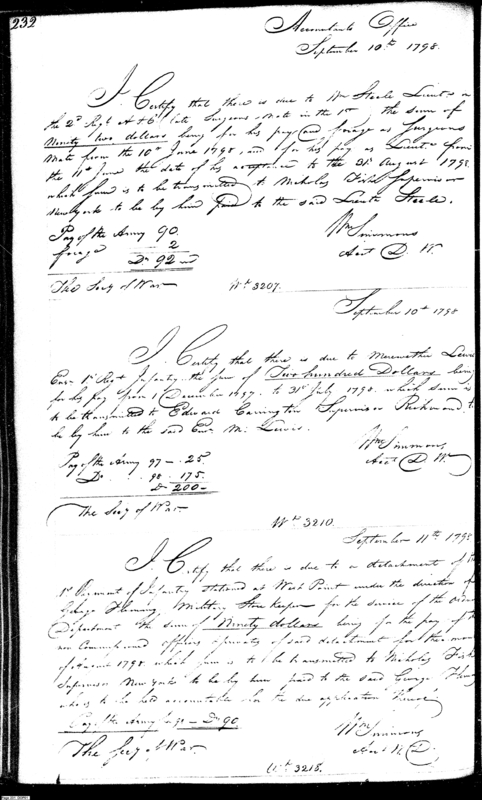 232
Accountants Office
September 10th 1798.
I Certify that there is due to Wm Steele Lieut. in
the 2d Regt A & E late Surgeons Mate in the 1st the sum of
Ninety two dollars being for his pay and forage as Surgeons
Mate from the 10th June 1798. and for his pay as Lieut. from
the 11th June the date of his acceptance to the 31st August 1798
which sum is to be transmitted to Nicholas Fish Supervisor
New york to be by him paid to the said Lieut. Steele.
Pay of the Army 90.
forage 2
Ds 92
Wm Simmons
Acct D. W.
The Secy of War
Wt 3207.
September 10th 1798
I Certify that there is due to Merewether Lewis
Ensn 1st Regt Infantry the sum of Two hundred Dollars being
for his pay from 1 December 1797. to 31st July 1798. which sum is
to be transmitted to Edward Carrington Supervisor Richmond to
be by him to the said Ensn M. Lewis.
Pay of the Army 97 - 25.
Do 98. 175.
Ds 200-
Wm Simmons,
Acct D. W.
The Secy of War
Wt 3210.
September 11th 1798
I Certify that there is due to a detachment of the
1st Regiment of Infantry stationed at West Point under the direction of
George Fleming Military Store keeper for the service of the
Department the sum of Ninety dollars being for the pay of the
non Commissioned officers & privates of said detachment for the month
of August 1798 which sum is to be transmitted to Nicholas Fish
Supervisor New York to be by him paid to the said George Fleming
who is to be held accountable for the due application thereof
Pay of the Army Ds 90.
Wm Simmons
Acct W. D.
The Secy of War
Wt 3215.